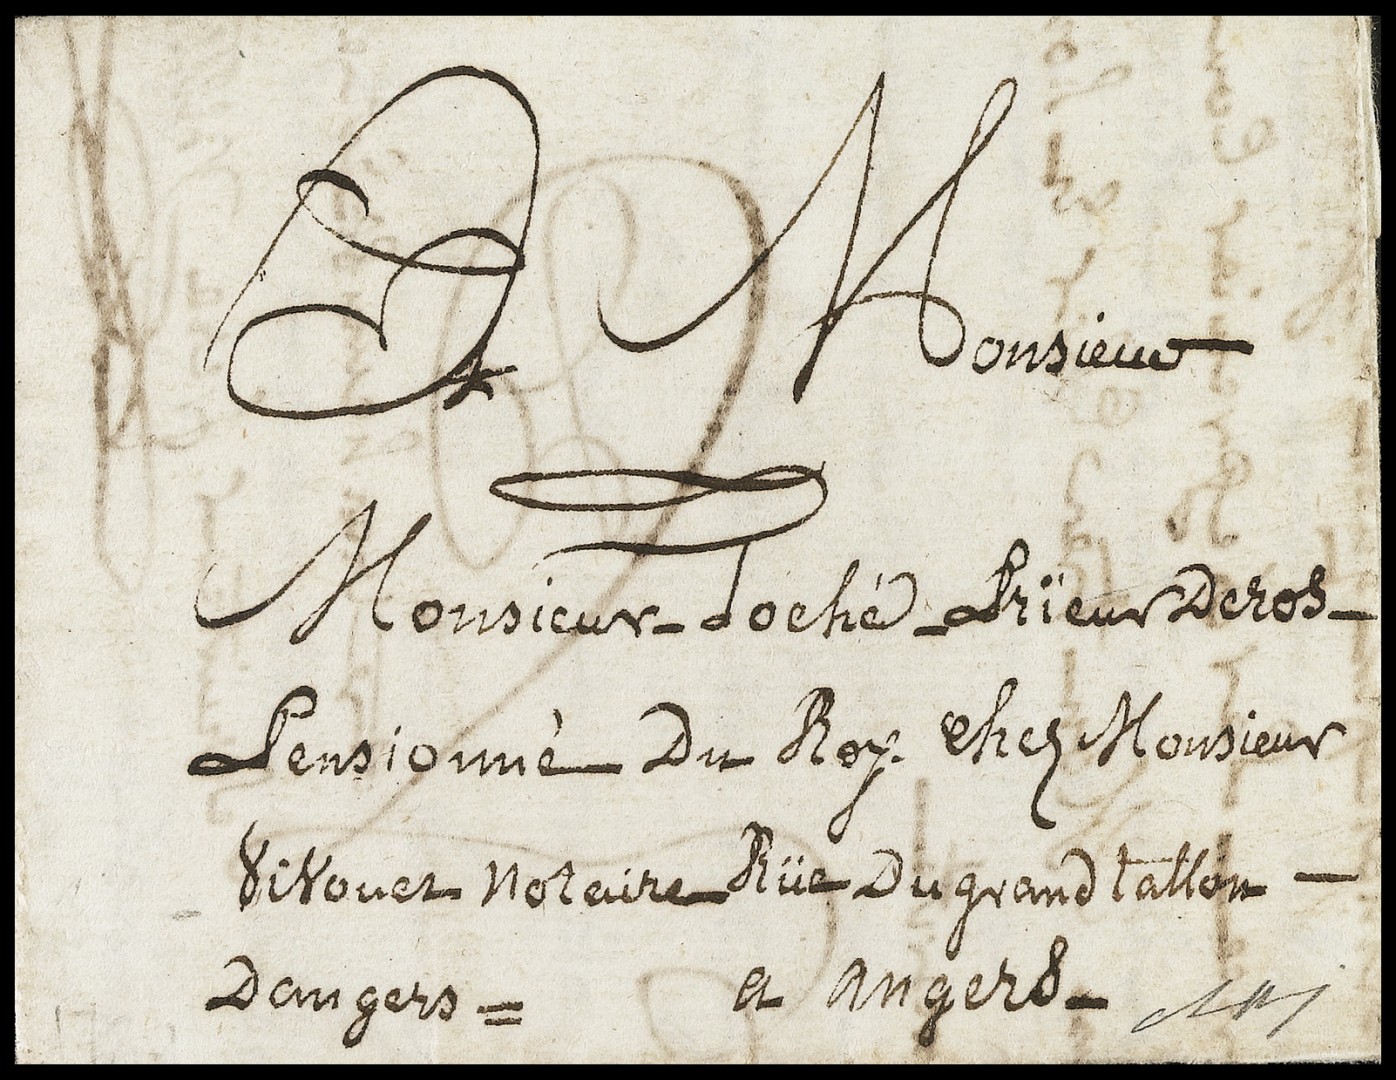 A Monsieur
Monsieur Toché Prieur Deros
Pensionné Du Roy. chez Monsieur
Notaire Rüe Du grand tallon
Dangers =
a angers